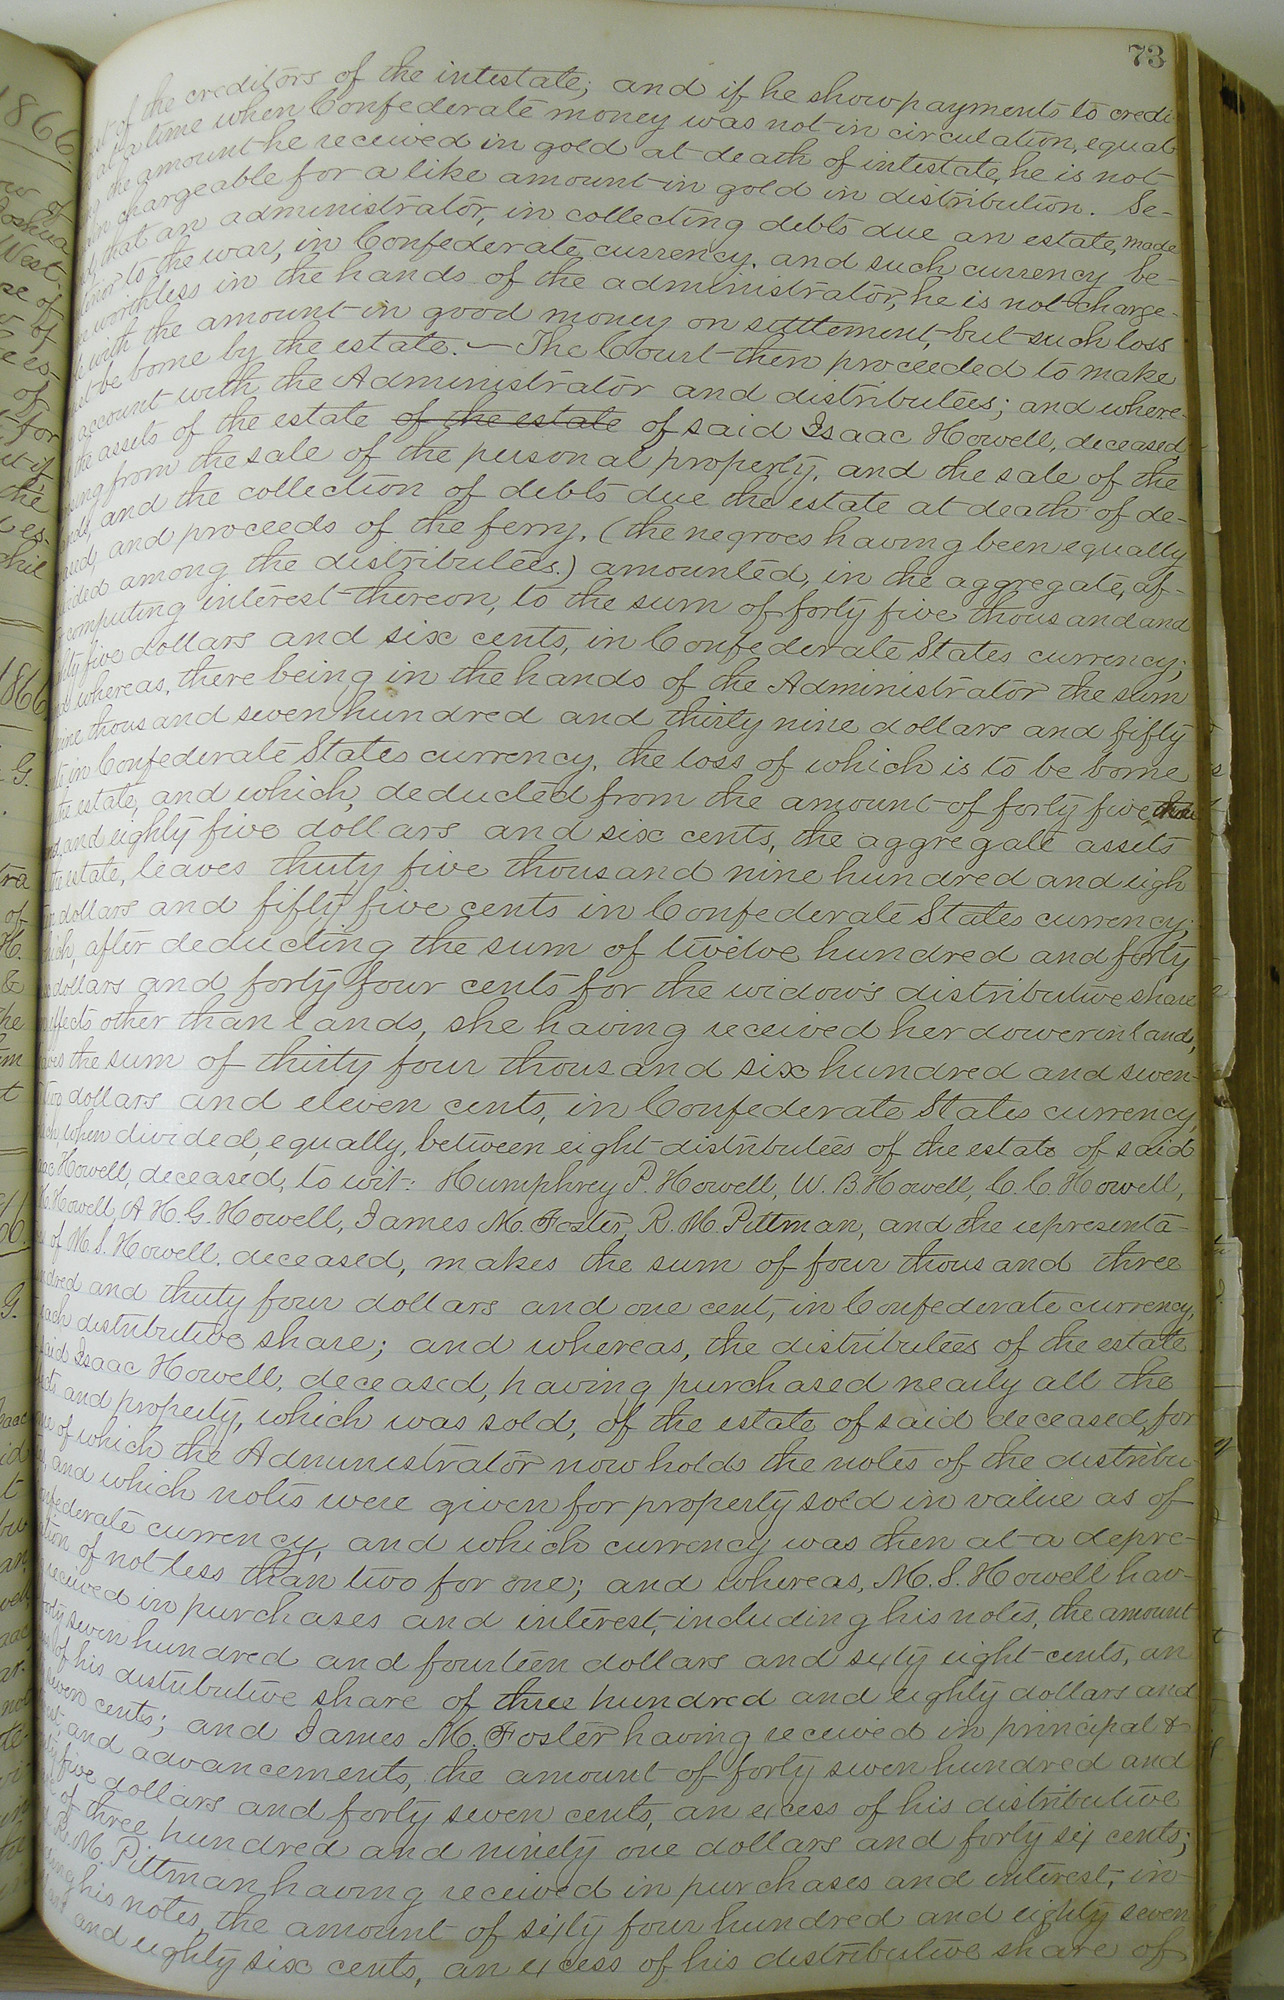 73
of the creditors of the intestate; and if he show payments to credi-
at a time when Confederate money was not in circulation, equal
the amount he received in gold at death of intestate, he is not
chargeable for a like amount in gold in distribution. Se-
that an administrator, in collecting debts due an estate, made
to the war, in Confederate currency, and such currency be-
worthless in the hands of the administrator, he is not charge-
with the amount in good money on settlement, but such loss
be borne by the estate. — The Court then proceeded to make
account with the Administrator and distributees; and where-
the assets of the estate of the estate of said Isaac Howell, deceased,
from the sale of the personal property, and the sale of the
and the collection of debts due the estate at death of de-
and proceeds of the ferry, (the negroes having been equally
among the distributees.) amounted, in the aggregate, af-
computing interest thereon, to the sum of forty five thousand and
five dollars and six cents, in Confederate States currency;
whereas, there being in the hands of the Administrator the sum
nine thousand seven hundred and thirty nine dollars and fifty
in Confederate States currency, the loss of which is to be borne
the estate, and which, deducted from the amount of forty five thou
and eighty five dollars and six cents, the aggregate assets
the estate, leaves thirty five thousand nine hundred and eigh
dollars and fifty five cents in Confederate States currency;
which, after deducting the sum of twelve hundred and forty
dollars and forty four cents for the widow's distributive share
effects other than lands, she having received her dower in land,
the sum of thirty four thousand six hundred and seven-
two dollars and eleven cents, in Confederate States currency,
when divided, equally, between eight distributees of the estate of said
Howell, deceased, to wit: Humphrey P. Howell, W. B. Howell, C. C. Howell,
Howell, A. H. G. Howell, James M. Foster, R. M. Pittman, and the representa-
of M. S. Howell, deceased, makes the sum of four thousand three
and thirty four dollars and one cent, in Confederate currency,
each distributive share; and whereas, the distributees of the estate
said Isaac Howell, deceased, having purchased nearly all the
and property, which was sold, of the estate of said deceased, for
of which the Administrator now holds the notes of the distribu-
and which notes were given for property sold in value as of
currency, and which currency was then at a depre-
of not less than two for one; and whereas, M. S. Howell hav-
received in purchases and interest, including his notes, the amount
seven hundred and fourteen dollars and sixty eight cents, an
of his distributive share of three hundred and eighty dollars and
seven cents; and James M. Foster having received in principal &
and advancements, the amount of forty seven hundred and
five dollars and forty seven cents, an excess of his distributive
of three hundred and ninety one dollars and forty six cents;
R. M. Pittman having received in purchases and interest, in-
his notes, the amount of sixty four hundred and eighty seven
and eighty six cents, an excess of his distributive share of